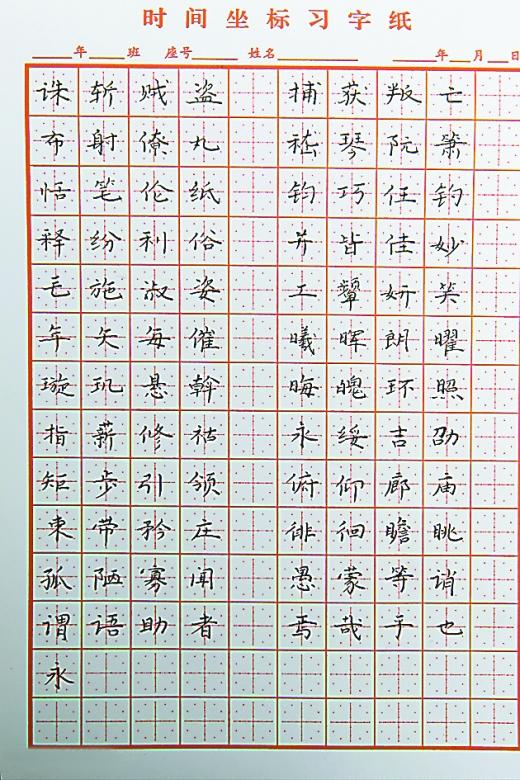 时间坐标习字纸
年 班 座号 姓名 年 月 日
诛斩贼盗 捕获叛亡
布射僚丸 嵇琴阮箫
恬笔伦纸 钧巧任钓
释纷利俗 并皆佳妙
毛施淑姿 工颦妍笑
年矢每催 曦晖朗曜
璇玑悬斡 晦魄环照
指薪修祜 永绥吉劭
矩步引领 俯仰廊庙
束带矜庄 徘徊瞻眺
孤陋寡闻 愚蒙等诮
谓语助者 焉哉乎也
永